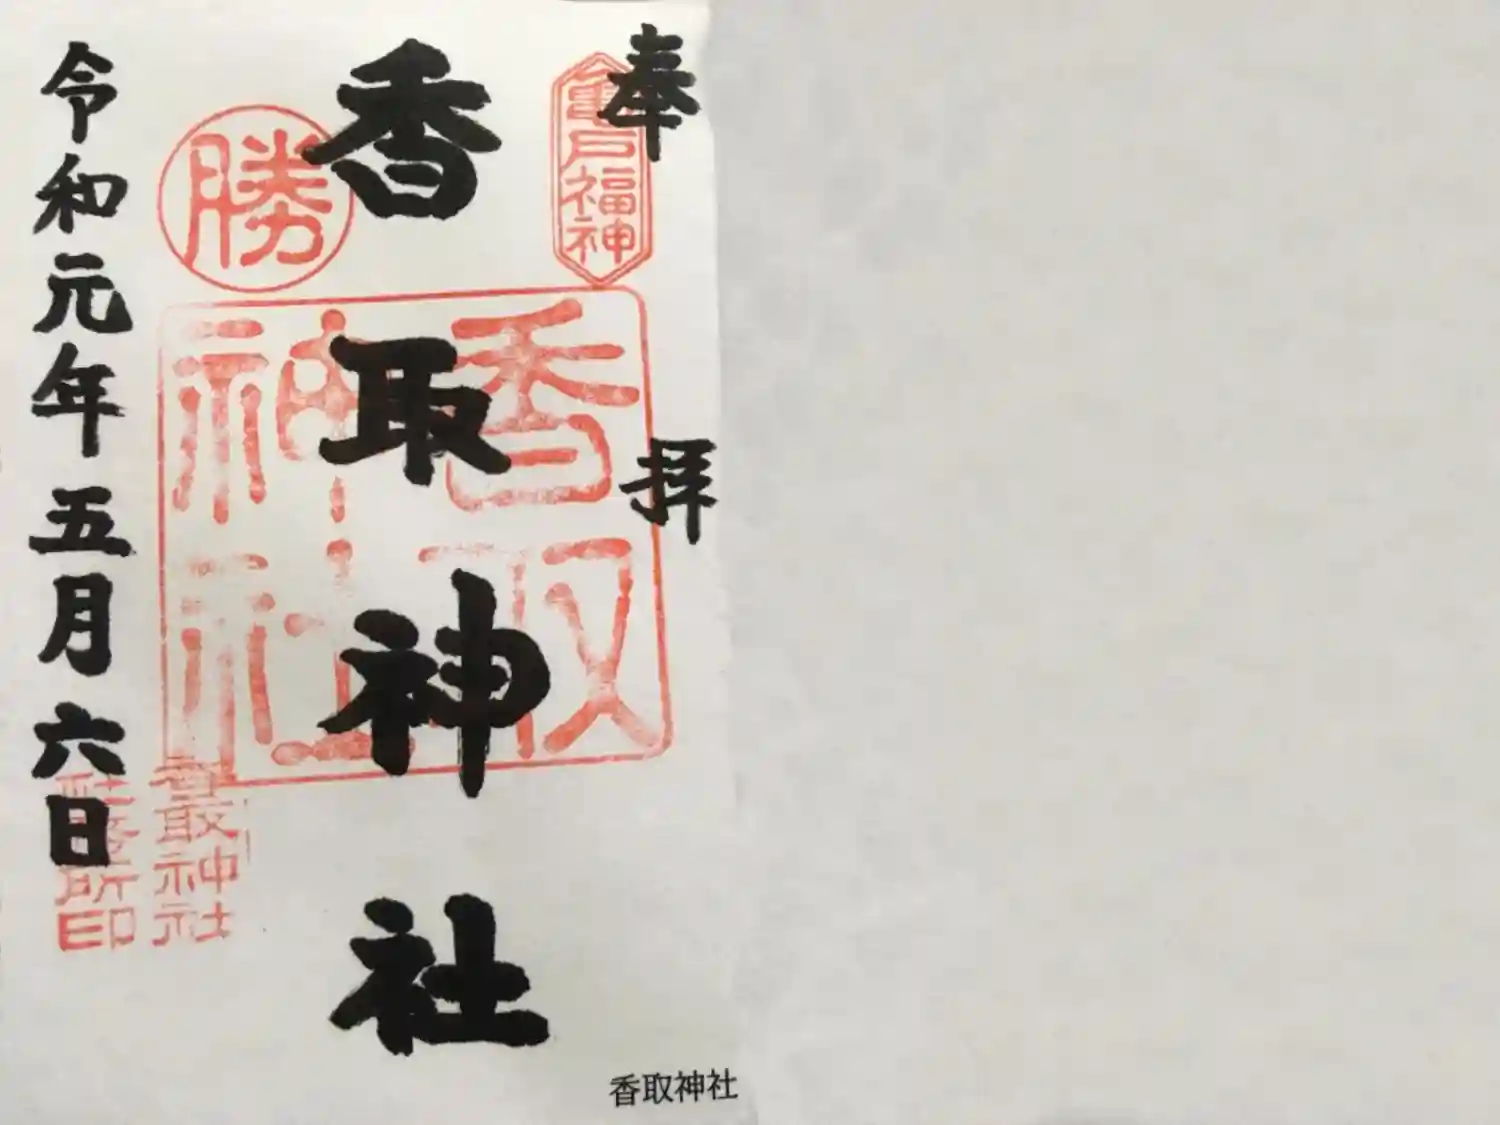 奉拝
亀戸福神
香取神社
勝
香取
神社
令和元年五月六日
香取神社
社務所印
香取神社